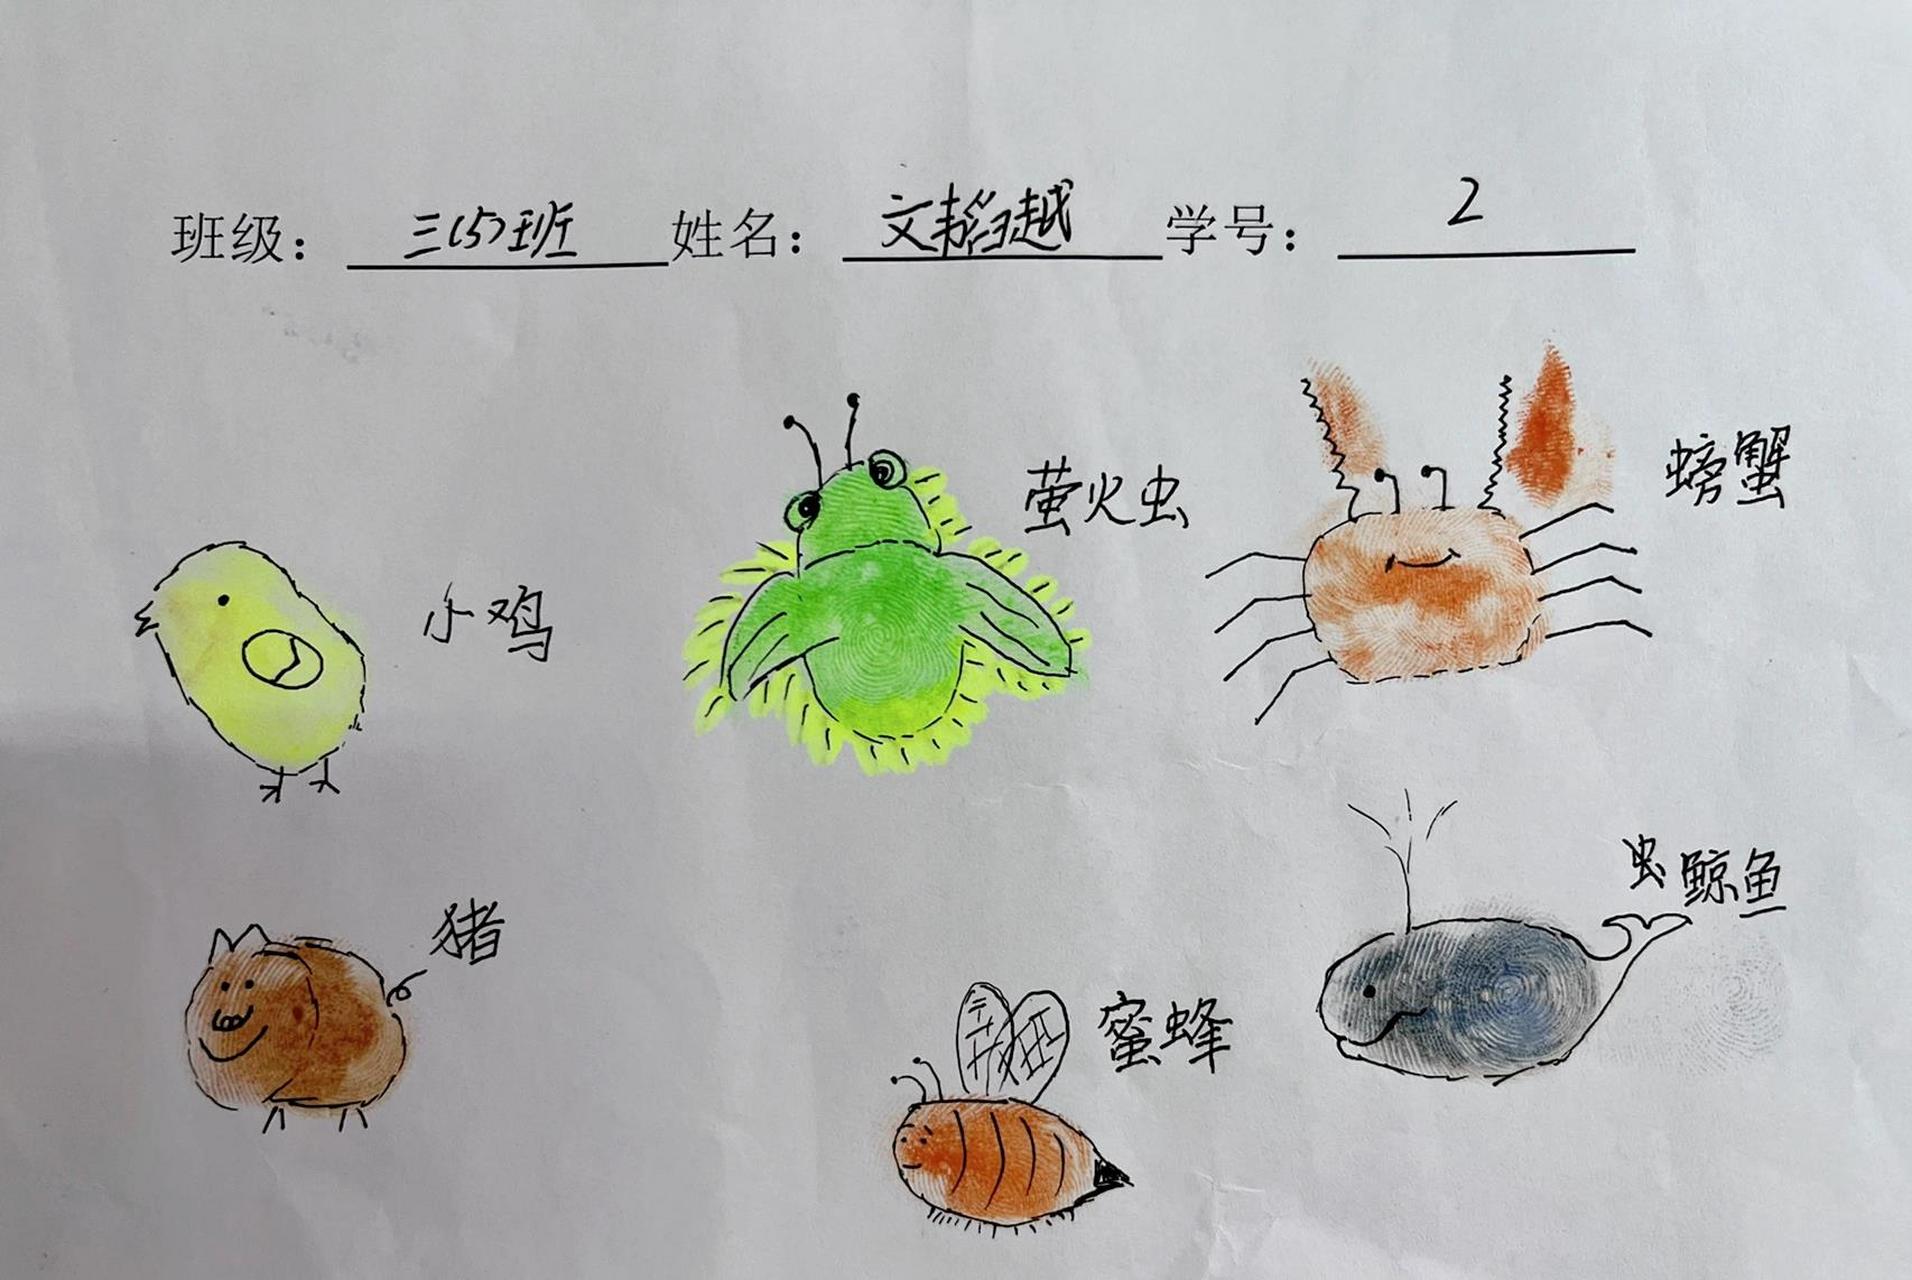 班级： 三(5)班 姓名： 文韬越 学号： 2
萤火虫
螃蟹
小鸡
虫鲸鱼
猪
蜜蜂